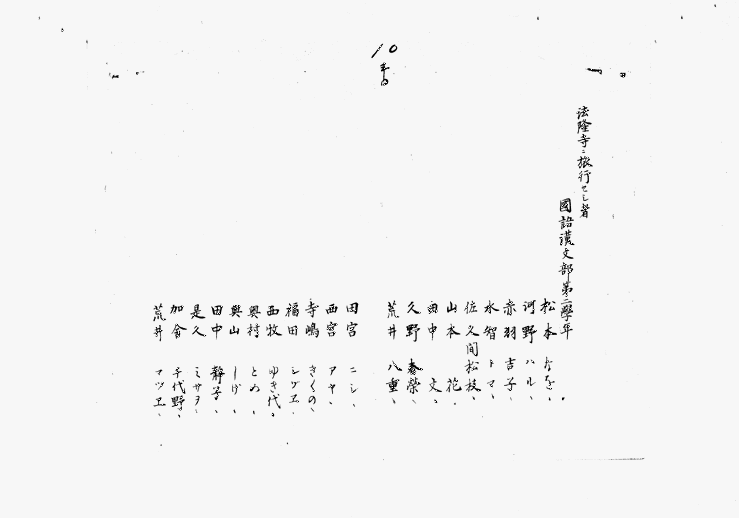 10
法隆寺ニ旅行セシ者
國語漢文部第二學年
松本
河野ハル、
赤羽吉子、
水智トマ、
佐久間松枝、
山本花、
田中文、
久野春榮、
荒井八重、
田宮ニシ、
西宮アヤ、
寺嶋きくの、
福田シゲヱ、
西牧ゆき代、
奥村とめ、
奥山しげ、
田中靜子、
是久ミサヲ、
加舎千代野、
荒井マツヱ、